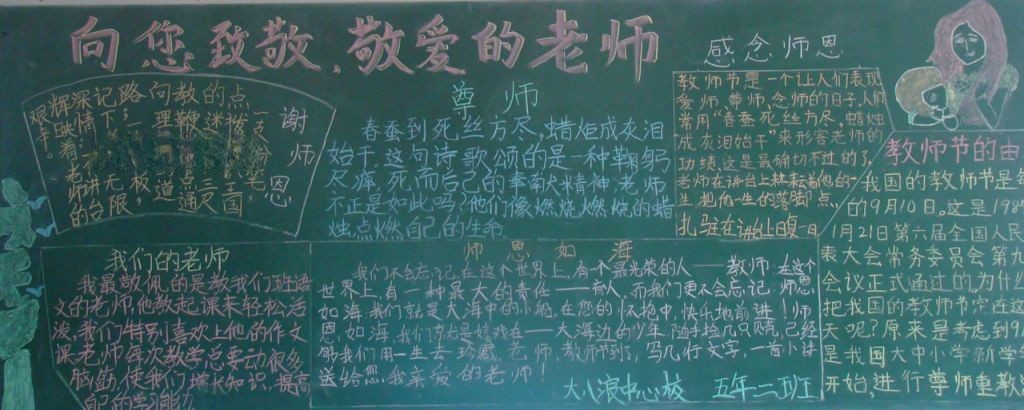 向您致敬,敬爱的老师
谢师恩
尊师
春蚕到死丝方尽,蜡炬成灰泪
始干,这句诗歌颂的是一种鞠躬
尽瘁,死而后已的奉献精神,老师
不正是如此吗?他们像燃烧燃烧的蜡
烛,点燃自己的生命
感念师恩
教师节是一个让人们表现
爱师、尊师、念师的日子,人们
常用“春蚕到死丝方尽,蜡炬
成灰泪始干”来形容老师的
功绩,这是最确切不过的了,
老师在讲台上耕耘着他的一
生把他一生的落脚点,
扎驻在讲台上
教师节的由
我国的教师节是每
的9月10日。这是198
1月21日第六届全国人民
表大会常务委员会第九
会议正式通过的,为什么
把我国的教师节定在这
天呢?原来是考虑到9
是我国大中小学新学年
开始,进行尊师重教
我们的老师
我最敬佩的是教我们班语
文的老师,他教起课来轻松活
泼,我们特别喜欢上他的作文
课,老师每次教学总要动很多
脑筋,使我们增长知识,提高
自己的学习能力
师恩如海
我们不会忘记,在这个世界上,有个最光荣的人——教师。在这个
世界上,有一种最大的责任——育人。而我们更不会忘记,师恩
如海,我们就是大海中的小船,在您的怀抱中,快乐地前进!师
恩如海,我们就是嬉戏在——大海边的少年,随手捡几只贝壳,已经
够我们用一生去珍藏。老师,教师节到了,写几行文字,一首小诗
送给您,我亲爱的老师!
大八浪中心校 五年二班